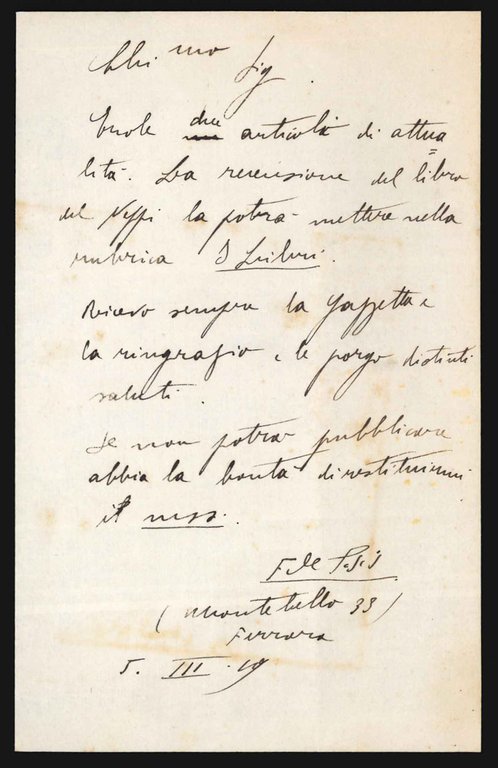 Ill mo Sig.
Eccole due articoli di attua=
lità. La recensione del libro
del Neppi la potrà mettere nella
rubrica I Libri.
Ricevo sempre la Gazzetta e
la ringrazio e le porgo distinti
saluti.
Se non potrà pubblicare
abbia la bontà di restituirmi
il mss.
F. de Pisis
(Montebello 33)
Ferrara
5. III. 19